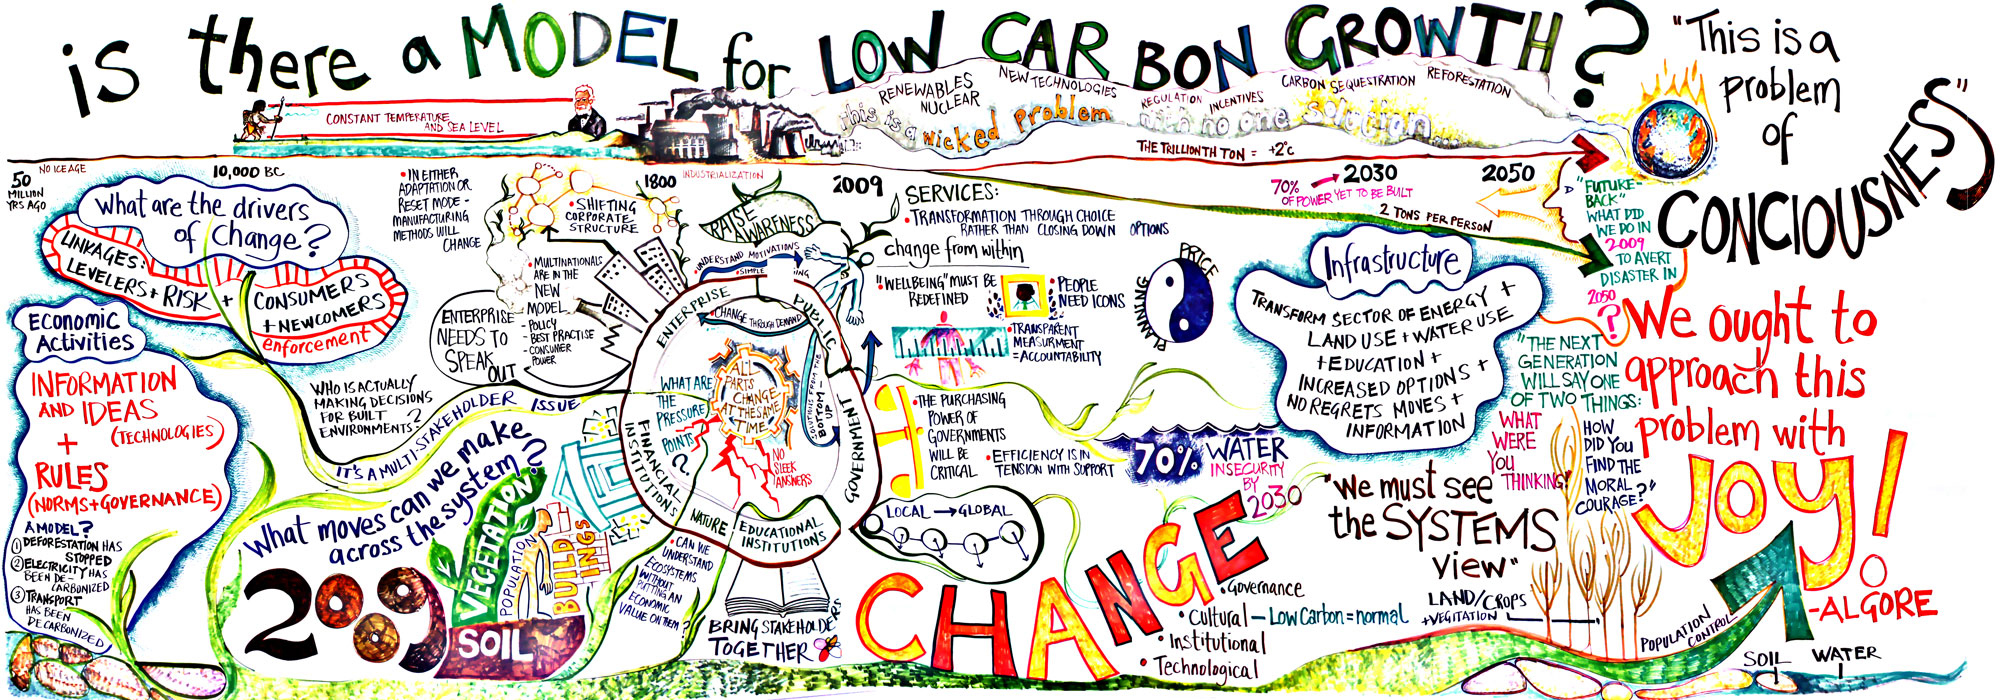 is there a MODEL for LOW CARBON GROWTH?
"This is a
problem
of
CONCIOUSNESS"
CONSTANT TEMPERATURE
AND SEA LEVEL
RENEWABLES
NUCLEAR
NEW TECHNOLOGIES
REGULATION
INCENTIVES
CARBON SEQUESTRATION
REFORESTATION
this is a wicked problem
with no one solution
THE TRILLIONTH TON = +2°C
50
MILLION
YRS AGO
NO ICE AGE
10,000 BC
1800
INDUSTRIALIZATION
2009
70% → 2030
OF POWER YET TO BE BUILT
2050
2 TONS PER PERSON
"FUTURE-
BACK"
WHAT DID
WE DO IN
2009
TO AVERT
DISASTER IN
2050
?
What are the drivers
of Change?
LINKAGES:
LEVELERS + RISK +
CONSUMERS
+ NEWCOMERS
enforcement
Economic
Activities
INFORMATION
AND IDEAS
(TECHNOLOGIES)
+
RULES
(NORMS + GOVERNANCE)
A MODEL?
① DEFORESTATION HAS
STOPPED
② ELECTRICITY HAS
BEEN DE-
CARBONIZED
③ TRANSPORT
HAS BEEN
DECARBONIZED
• IN EITHER
ADAPTATION OR
RESET MODE -
MANUFACTURING
METHODS WILL
CHANGE
• SHIFTING
CORPORATE
STRUCTURE
• MULTINATIONALS
ARE IN THE
NEW
MODEL
- POLICY
- BEST PRACTISE
- CONSUMER
POWER
ENTERPRISE
NEEDS TO
SPEAK
OUT
WHO IS ACTUALLY
MAKING DECISIONS
FOR BUILT
ENVIRONMENTS?
IT'S A MULTI-STAKEHOLDER ISSUE
What moves can we make
across the system?
2009
VEGETATION
POPULATION
BUILDINGS
SOIL
RAISE
AWARENESS
UNDERSTAND MOTIVATIONS
• SIMPLE
ENTERPRISE
PUBLIC
GOVERNMENT
EDUCATIONAL
INSTITUTIONS
NATURE
FINANCIAL
INSTITUTIONS
• CHANGE THROUGH DEMAND
SOLUTIONS FROM THE
BOTTOM-UP
WHAT ARE
THE
PRESSURE
POINTS
?
ALL
PARTS
CHANGE
AT THE SAME
TIME
NO
SLEEK
ANSWERS
• CAN WE
UNDERSTAND
ECOSYSTEMS
WITHOUT
PUTTING AN
ECONOMIC
VALUE ON THEM?
BRING STAKEHOLDERS
TOGETHER
SERVICES:
• TRANSFORMATION THROUGH CHOICE
RATHER THAN CLOSING DOWN OPTIONS
change from within
• "WELLBEING" MUST BE
REDEFINED
• PEOPLE
NEED ICONS
• TRANSPARENT
MEASURMENT
= ACCOUNTABILITY
PLANNING
PRICE
• THE PURCHASING
POWER OF
GOVERNMENTS
WILL BE
CRITICAL
• EFFICIENCY IS IN
TENSION WITH SUPPORT
70% WATER
INSECURITY
BY
2030
LOCAL → GLOBAL
CHANGE
• Governance
• Cultural - Low Carbon = normal
• Institutional
• Technological
Infrastructure
TRANSFORM SECTOR OF ENERGY +
LAND USE + WATER USE
+ EDUCATION +
INCREASED OPTIONS +
NO REGRETS MOVES +
INFORMATION
"THE NEXT
GENERATION
WILL SAY ONE
OF TWO THINGS:
WHAT
WERE
YOU
THINKING?
HOW
DID YOU
FIND THE
MORAL
COURAGE?"
"We must see
the SYSTEMS
view"
LAND/CROPS
+ VEGITATION
POPULATION
CONTROL
SOIL
WATER
We ought to
approach this
problem with
JOY!
-AL GORE